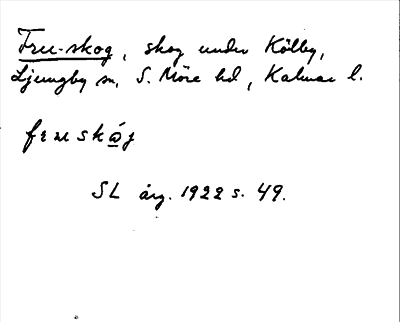 Fru-skog, skog under Kölby,
Ljungby sn, S. Möre hd, Kalmar l.
fruskåg
SL årg. 1922 s. 49.